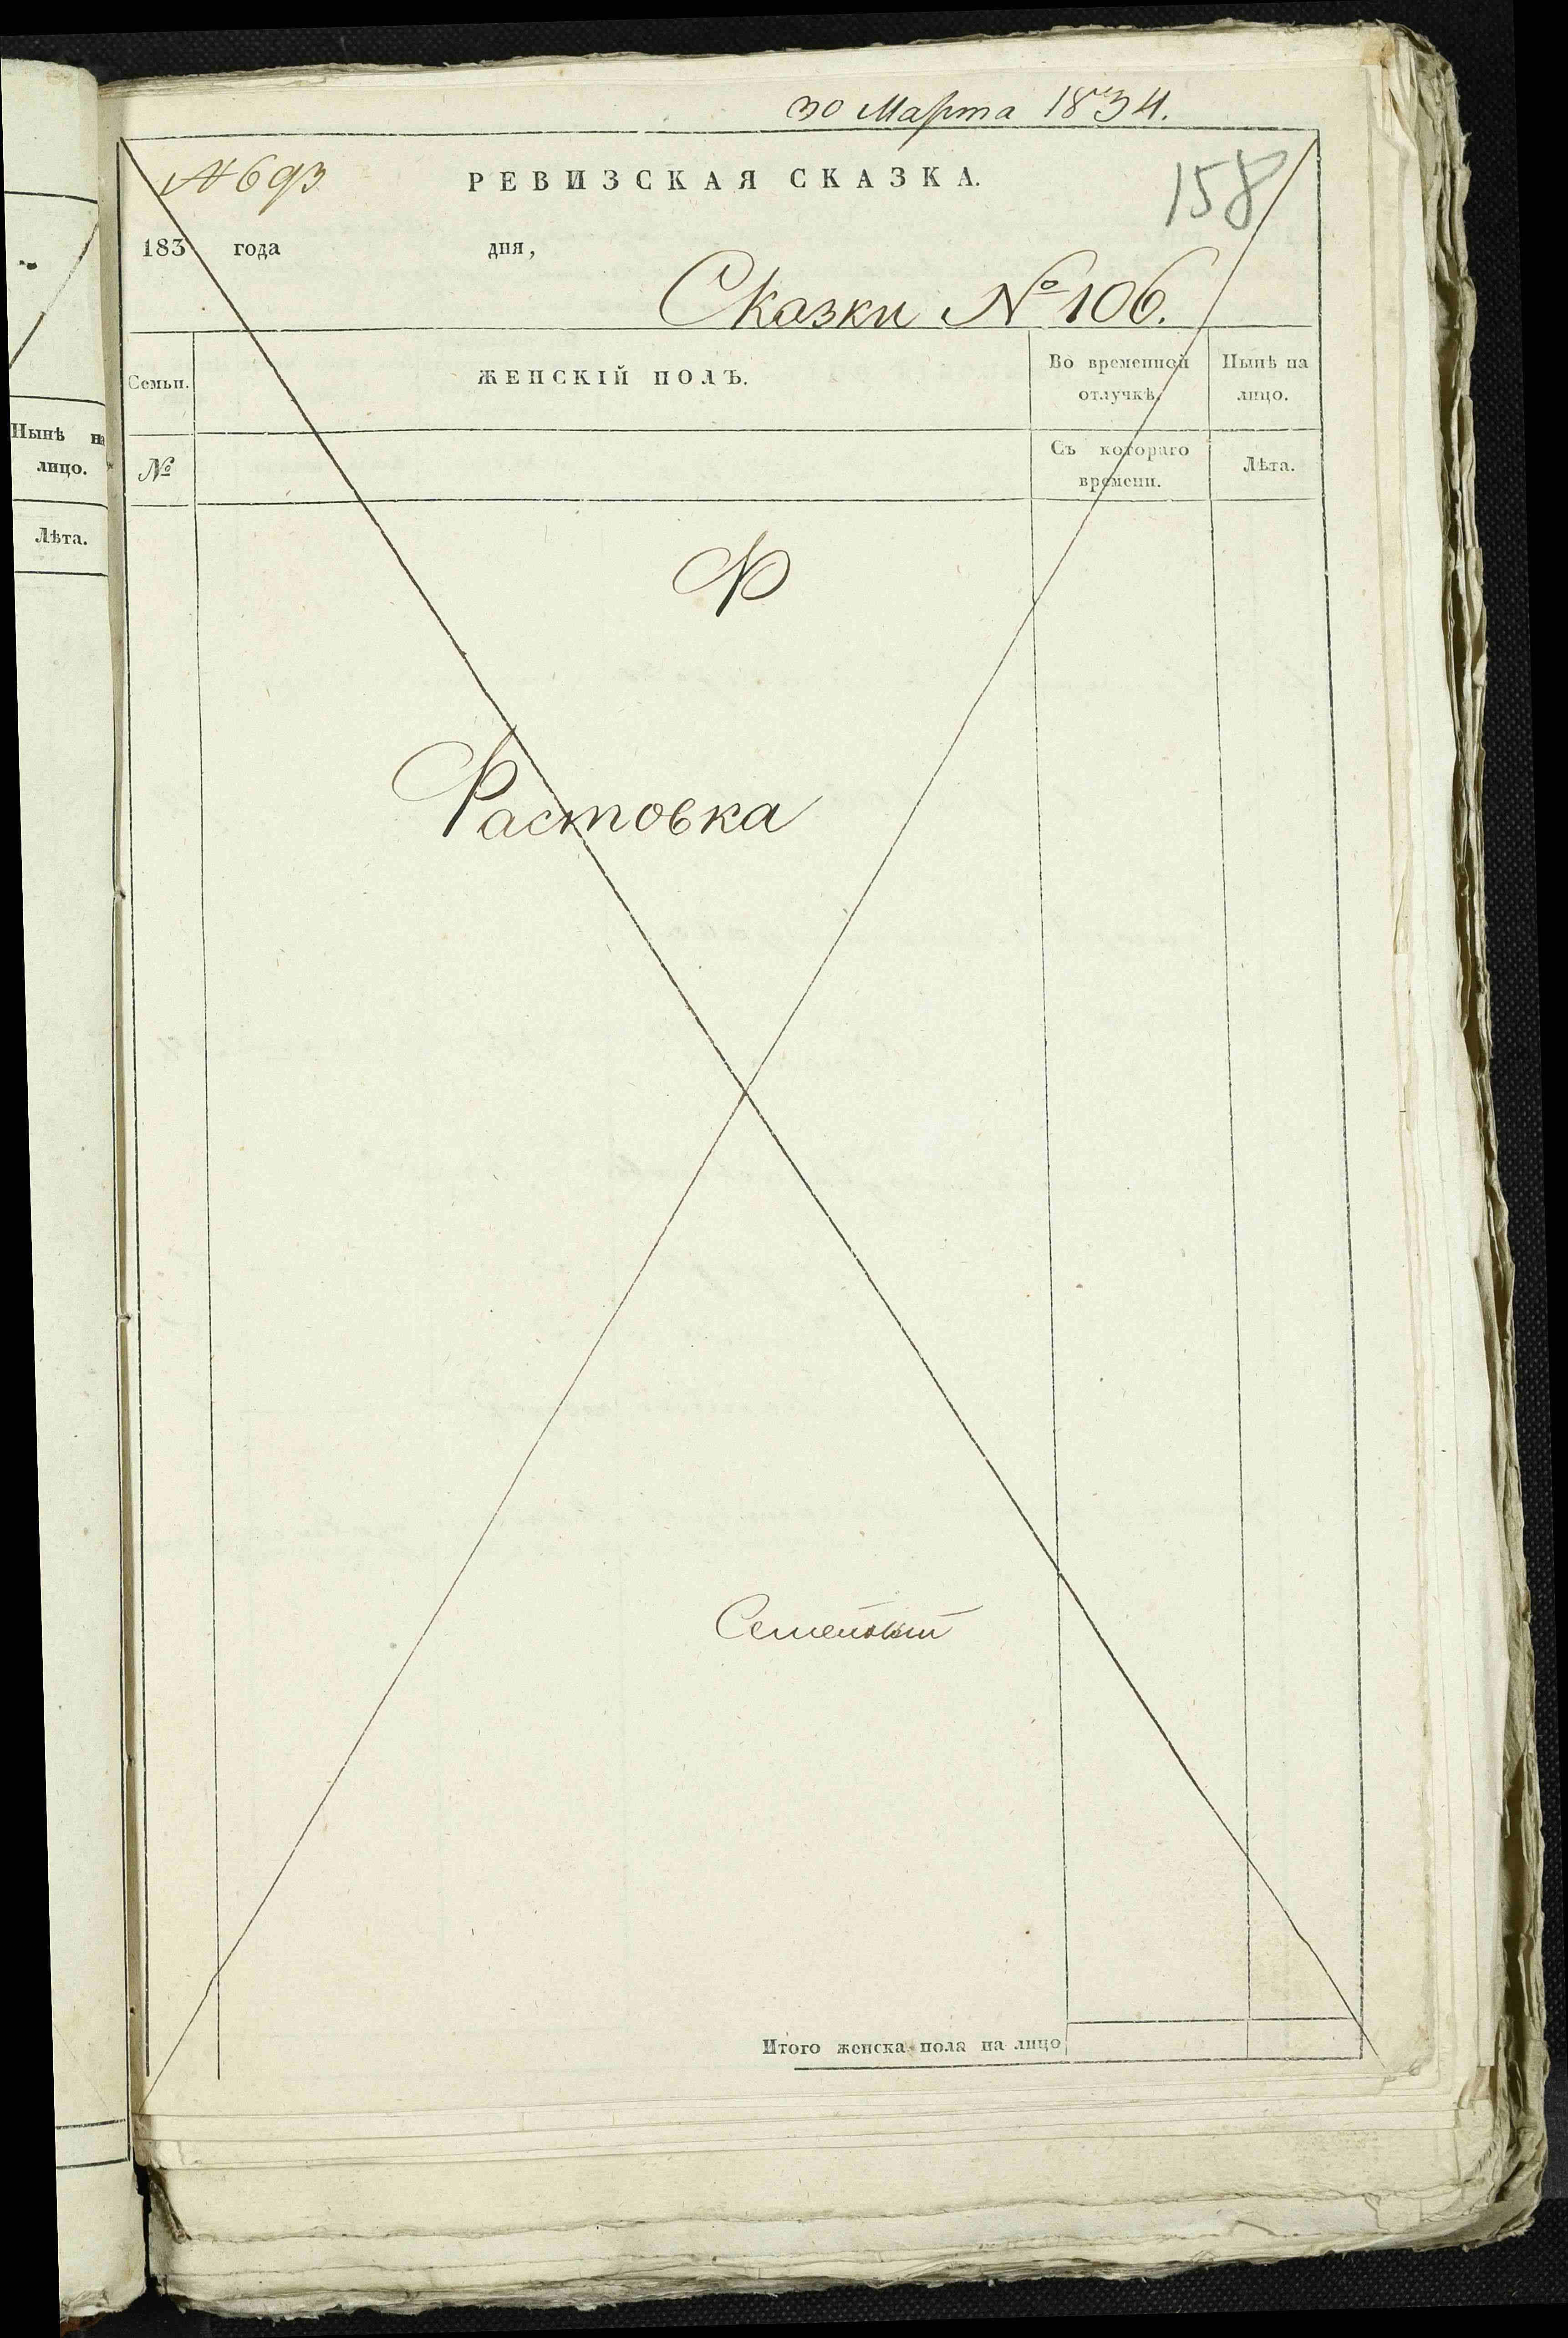 Нынѣ на
лицо.
Лѣта.
30 Марта 1834.
№ 693
РЕВИЗСКАЯ СКАЗКА.
158
183 года дня,
Сказки № 106.
Семьи.
ЖЕНСКІЙ ПОЛЪ.
Во временной
отлучкѣ.
Нынѣ на
лицо.
№
Съ котораго
времени.
Лѣта.
Ф
Фастовка
Итого женска пола на лицо